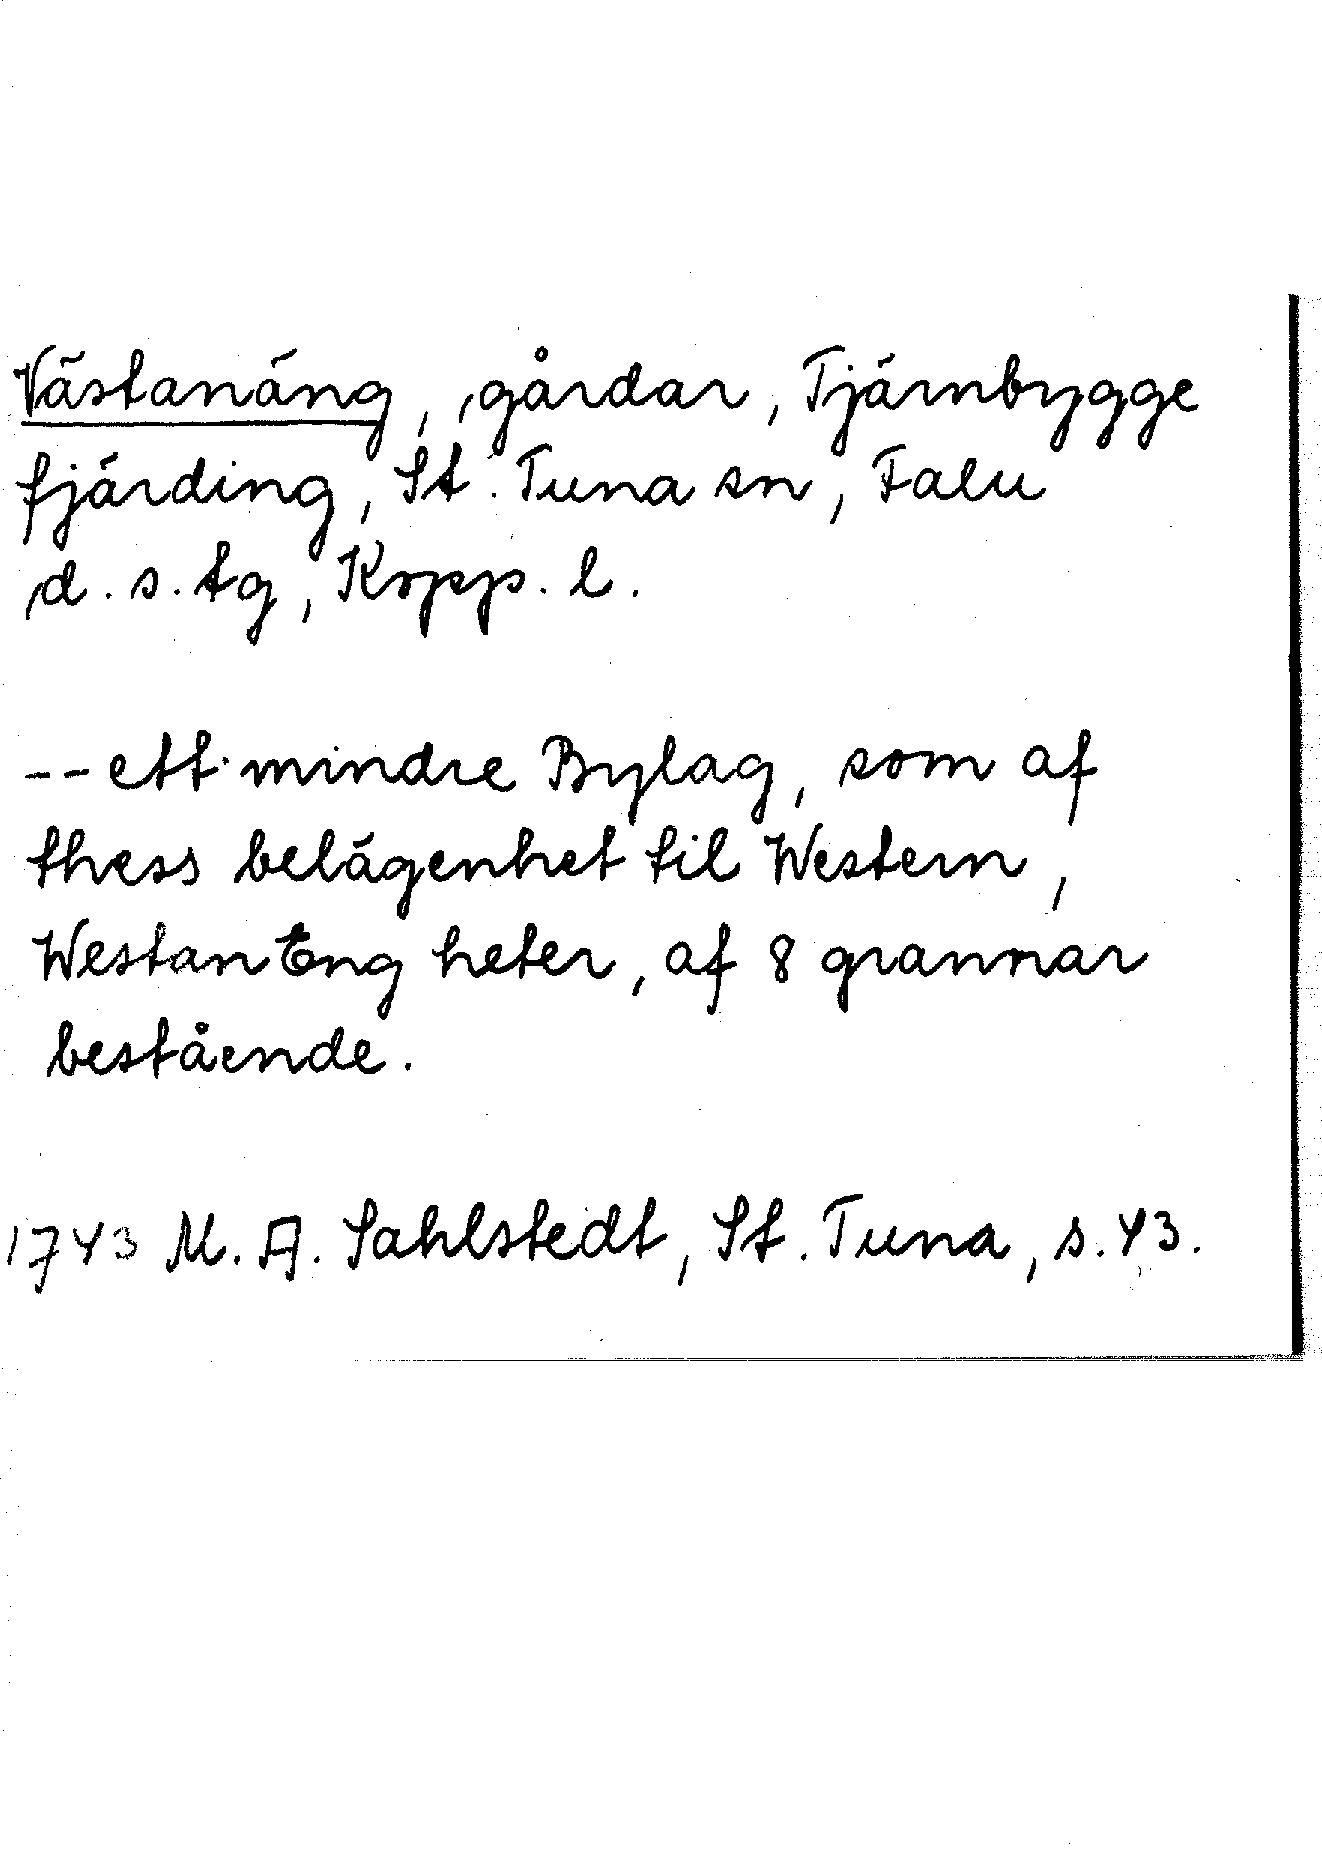 Västanäng, gårdar, Tjärnbygge
fjärding, St. Tuna sn, Falu
d. s. tg, Kopp. l.
-- ett mindre Bylag, som af
thess belägenhet til Western,
WestanEng heter, af 8 grannar
bestående.
1743 M. A. Sahlstedt, St. Tuna, s. 43.